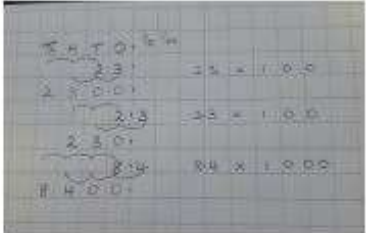 H T O.
23. 23 × 100
2300.
2.3 2.3 × 100
230.
8.4 8.4 × 1000
8400.